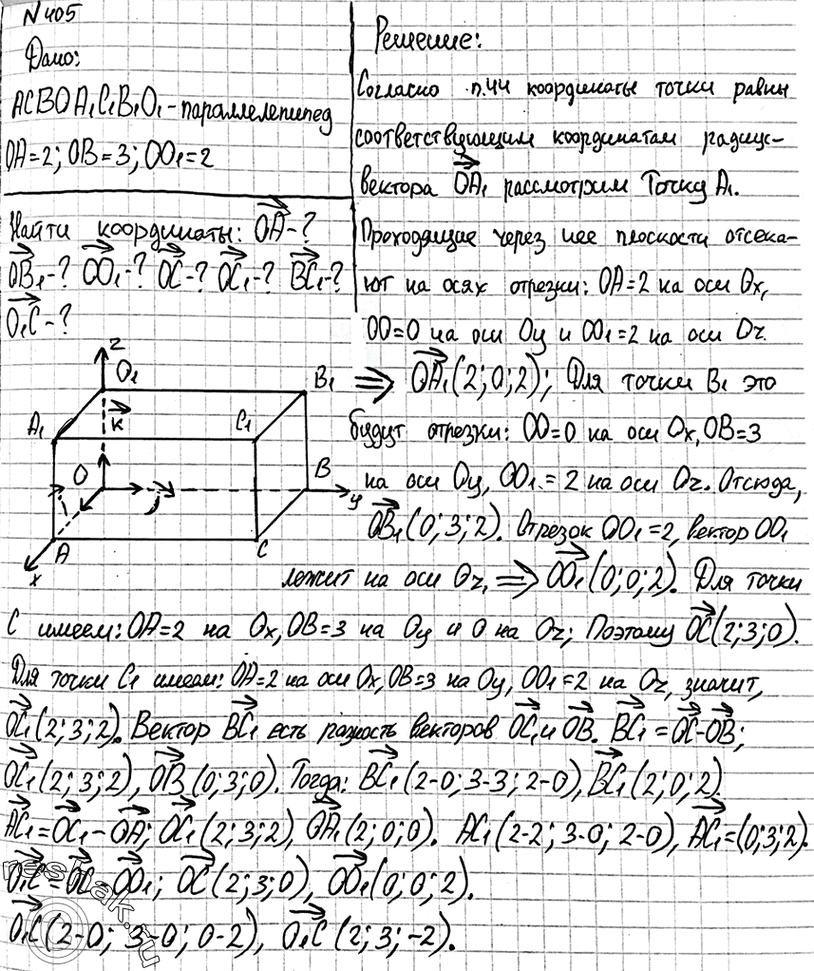 N 405
Дано:
ACBOA₁C₁B₁O₁ - параллелепипед
OA=2; OB=3; OO₁=2
Найти координаты: OA-?
OB₁-? OO₁-? OC-? OC₁-? BC₁-?
O₁C-?
Решение:
Согласно п.44 координаты точки равны
соответствующим координатам радиус-
вектора OA₁ рассмотрим Точку A₁.
Проходящие через нее плоскости отсека-
ют на осях отрезки: OA=2 на оси Ox,
OO=0 на оси Oy и OO₁=2 на оси Oz.
⇒ OA₁(2;0;2); Для точки B₁ это
будут отрезки: OO=0 на оси Ox, OB=3
на оси Oy, OO₁=2 на оси Oz. Отсюда,
OB₁(0;3;2). Отрезок OO₁=2, вектор OO₁
лежит на оси Oz, ⇒ OO₁(0;0;2). Для точки
z
O₁
B₁
A₁
C₁
k
O
B
i
j
y
A
C
x
C имеем: OA=2 на Ox, OB=3 на Oy и 0 на Oz; Поэтому OC(2;3;0).
Для точки C₁ имеем: OA=2 на оси Ox, OB=3 на Oy, OO₁=2 на Oz, значит,
OC₁(2;3;2). Вектор BC₁ есть разность векторов OC₁ и OB. BC₁=OC-OB;
OC₁(2;3;2), OB(0;3;0). Тогда: BC₁(2-0; 3-3; 2-0), BC₁(2;0;2).
AC₁=OC₁-OA; OC₁(2;3;2), OA₁(2;0;0). AC₁(2-2; 3-0; 2-0), AC₁=(0;3;2).
O₁C=OC-OO₁; OC(2;3;0), OO₁(0;0;2).
O₁C(2-0; 3-0; 0-2), O₁C(2;3;-2).
reshak.ru